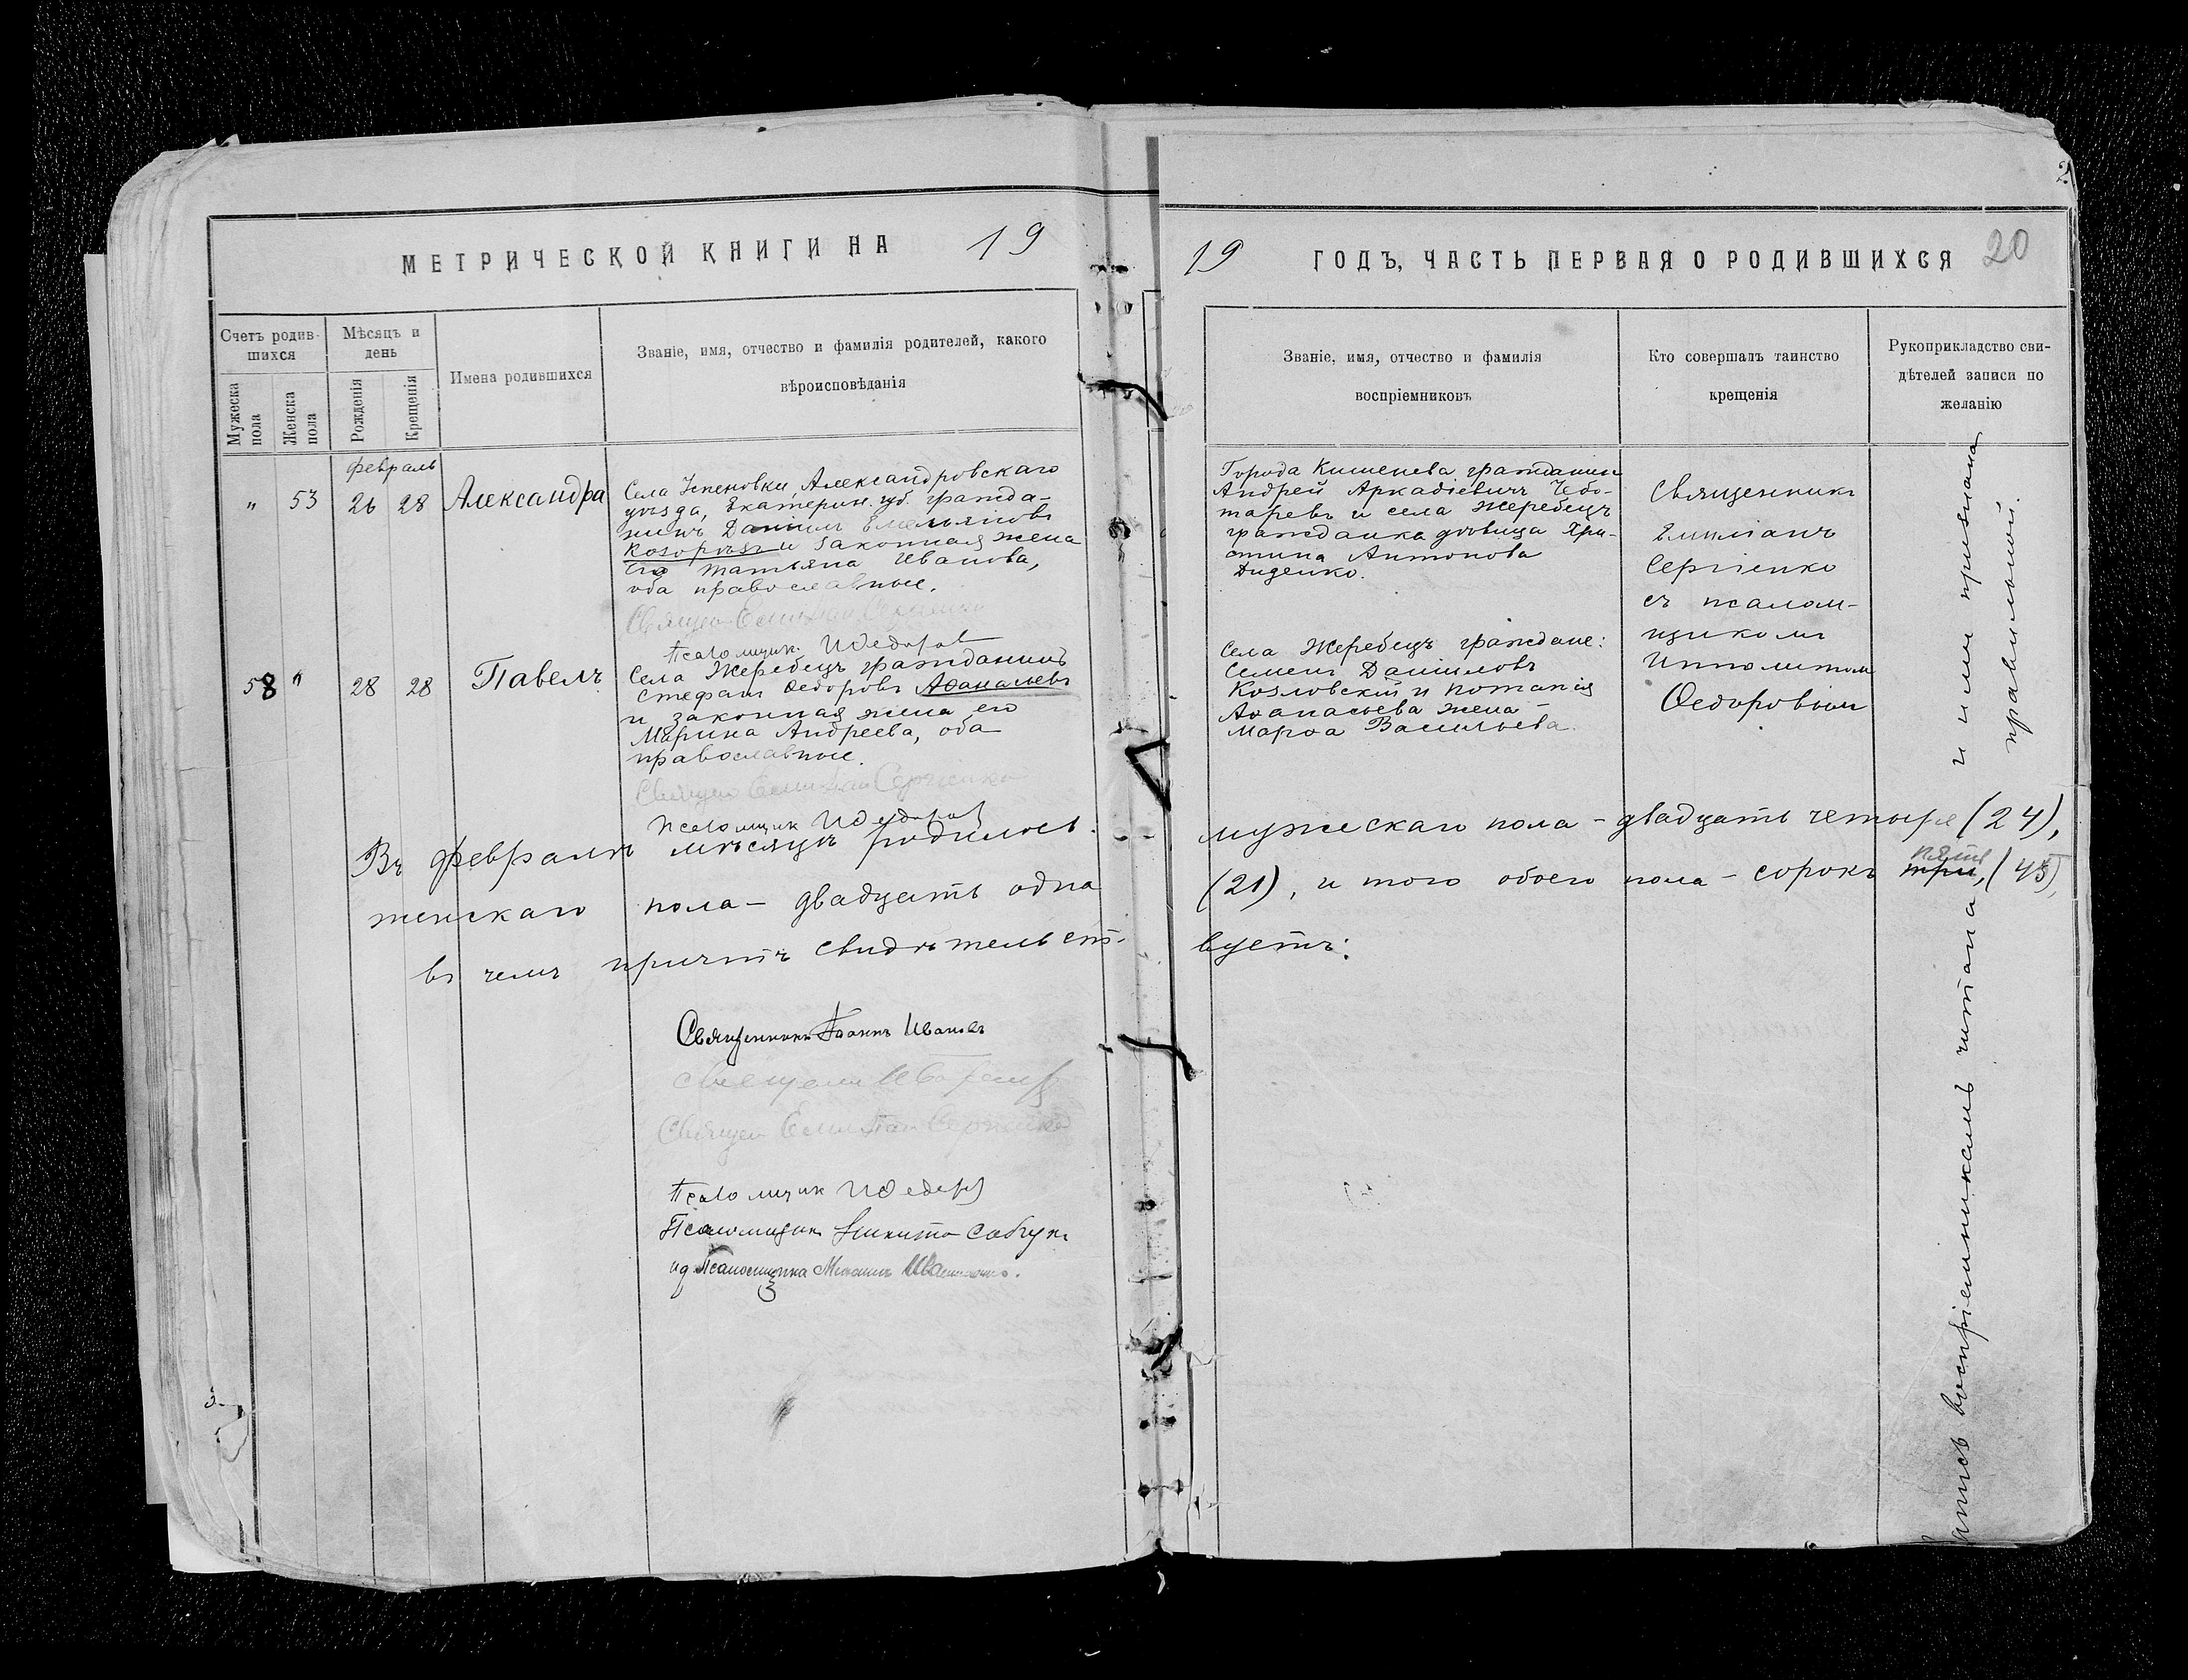 МЕТРИЧЕСКОЙ КНИГИ НА 19
Счетъ родив-
шихся
Мѣсяцъ и
день
Имена родившихся
Званіе, имя, отчество и фамилія родителей, какого
вѣроисповѣданія
Мужеска
пола
Женска
пола
Рожденія
Крещенія
февраль
" 53 26 28 Александра
Села Успеновки, Александровскаго
уѣзда, Екатерин. губ. гражда-
нинъ Даніилъ Емельяновъ
Козорѣзъ и законная жена
его Татьяна Иванова,
оба православные.
Священ. Емиліан Сергіенко
Псаломщик. И Федоров
58 " 28 28 Павелъ
Села Жеребецъ гражданинъ
Стефанъ Ѳедоровъ Аѳанасьевъ
и законная жена его
Марина Андреева, оба
православные.
Священ Емилиан Сергіенко
Псаломщик И Федоров
Въ февралѣ мѣсяцѣ родилось
женскаго пола - двадцать одна
въ чемъ причтъ свидѣтельст-
Священникъ Іоаннъ Ивановъ
Священ Емилиан Сергіенко
Псаломщик И Федоров
Псаломщик Никита
ид Псаломщика
2
19 ГОДЪ, ЧАСТЬ ПЕРВАЯ О РОДИВШИХСЯ 20
Званіе, имя, отчество и фамилія
воспріемниковъ
Кто совершалъ таинство
крещенія
Рукоприкладство сви-
дѣтелей записи по
желанію
Города Кишенева гражданин
Андрей Аркадіевичъ Чебо-
таревъ и села Жеребецъ
гражданка дѣвица Хри-
стина Антонова
Диденко.
Села Жеребецъ граждане:
Семенъ Даниловъ
Козловскій и Потапія
Аѳанасьева жена -
Марѳа Васильева.
Священникъ
Емиліанъ
Сергіенко
съ псалом-
щикомъ
Ипполитом
Ѳедоровым
мужескаго пола - двадцать четыре (24),
(21), и того обоего пола - сорокъ три, (45),
пять
вуетъ:
запись воспріемникамъ читана и ими признана
правильной.